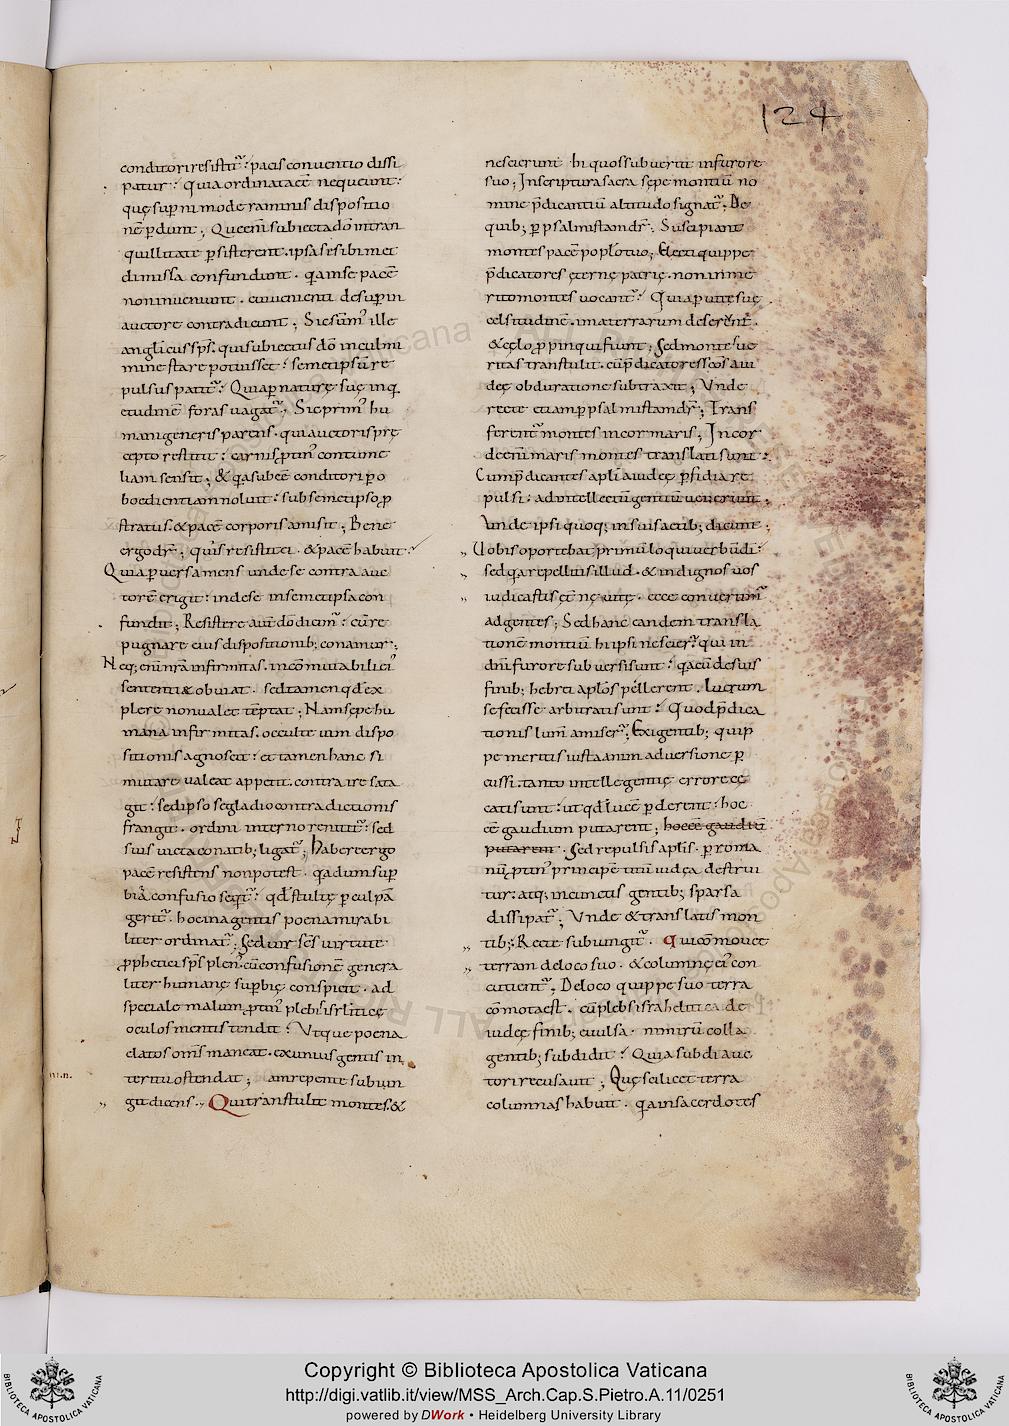 124
conditori resistit᷑: pacis conventio dissi
patur: quia ordinata eē nequeunt:
quę sup̄ni moderaminis dispositio
nē ꝑdunt; Que enī subiecta dō in tran
quillitate ꝑsisterent. ipsa sese sibimet
dimissa confundunt. q̄a in se pacē
non inveniunt. cui venienti desup̄ in
auctore contradicunt; Sic sum̄᾽ ille
anglicus sp̄s. qui subiectus dō in culmi
mine stare potuisset: semetipsū re
pulsus patit᷑: Quia ꝑ naturę suę inq
etudinē foras vagat᷑; Sic prim᾽ hu
mani generis parens. qui auctoris prę
cepto restitit: carnis ꝓtin᾽ contume
liam sensit; & q̄a subeē conditori ꝑ o
boedientiam noluit: sub semetipso ꝓ
stratus. & pacē corporis amisit; Bene
ergo dr̄; quis restitit ei. & pacē habuit:
Quia ꝑversa mens unde se contra auc
torē erigit: inde se in semetipsa con
fundit; Resistere autē dō dicim᷑: cū re
pugnare eius dispositionib; conamur;
Neq; enī nr̄a infirmitas. incōmutabilici᾽
sententi& obviat. sed tamen qđ ex
plere non valet tēptat; Nam sępe hu
mana infirmitas. occulte vim dispo
sitionis agnoscit: et tamen hanc si
mutare valeat appetit. contraire sata
git: sed ipso se gladio contradictionis
frangit. ordini interno renitit᷑: sed
suis victa conatib; ligat᷑; Habere ergo
pacē resistens non potest. q̄a dum sup̄
biā confusio seqt᷑: qđ stultę ꝑ culpā
gerit᷑. hoc in agentis poena mirabi
liter ordinat᷑; Sed vir scs̄ virtute
ꝓphetici sp̄s plen᾽. cū confusionē genera
liter humanę sup̄bię conspicit. ad
speciale malum ꝓtin᾽ plebis isr̄liticę
oculos mentis tendit: Ut que poena
elatos om̄s maneat. ex unius gentis in
teritu ostendat; amrepente subiun
git dicens. Qui transtulit montes. &
nescierunt hi quos subvertit in furore
suo; In scriptura sacra sępe montiū no
mine p̄dicantiū altitudo signat᷑. De
quib; ꝑ psalmistam dr̄; Suscipiant
montes pacē poplo tuo; Electi quippe
p̄dicatores ęternę patrię. non inme
rito montes vocant᷑: Quia ꝑ vitę suę
celsitudinē. ima terrarum deserunt.
& cęlo ꝓpinqui fiunt; Sed montes ve
ritas transtulit. cū p̄dicatores scōs a iu
deę obduratione subtraxit; Unde
recte etiam ꝑ psalmistam dr̄; Trans
ferent᷑ montes in cor maris; In cor
de enī maris montes translati sunt:
Cum p̄dicantes apli a iudeę ꝑfidia re
pulsi: ad intellectū gentiū venerunt;
Unde ipsi quoq; in suis actib; dicunt:
Vobis oportebat primū loqui verbū dī:
sed q̄a repellitis illud. & indignos vos
iudicastis ęt̄nę vitę. ecce convertim᷑
ad gentes; Sed hanc eandem transla
tionē montiū hi ipsi nescier᷑. qui in
dnī furore subversi sunt: q̄a cū de suis
finib; hebrei aplōs pellerent. lucrum
se fecisse arbitrati sunt: Quod p̄dica
tionis lum̄ amiser᷑; Exigentib; quip
pe meritis iusta animadversione ꝑ
cussi. tanto intellegentię errore cę
cati sunt: ut qđ lucē ꝑderent: hoc
eē gaudium putarent; hoc eē gaudiū
putarent. Sed repulsis aplis. ꝑ roma
nū ꝓtin᾽ principē titū iudęa destrui
tur: atq; in cunctis gentib; sparsa
dissipat᷑; Unde & translatis mon
tib; Recte subiungit᷑. Qui cōmovet
terram de loco suo. & columnę ei᾽ con
cutient᷑; De loco quippe suo terra
cōmota est. cū plebs israhelitica de
iudeę finib; evulsa. nimirū colla
gentib; subdidit: Quia subdi auc
tori recusavit; Quę scilicet terra
columnas habuit. q̄a in sacerdotes
Copyright © Biblioteca Apostolica Vaticana
http://digi.vatlib.it/view/MSS_Arch.Cap.S.Pietro.A.11/0251
powered by DWork • Heidelberg University Library
BIBLIOTECA APOSTOLICA VATICANA
BIBLIOTECA APOSTOLICA VATICANA